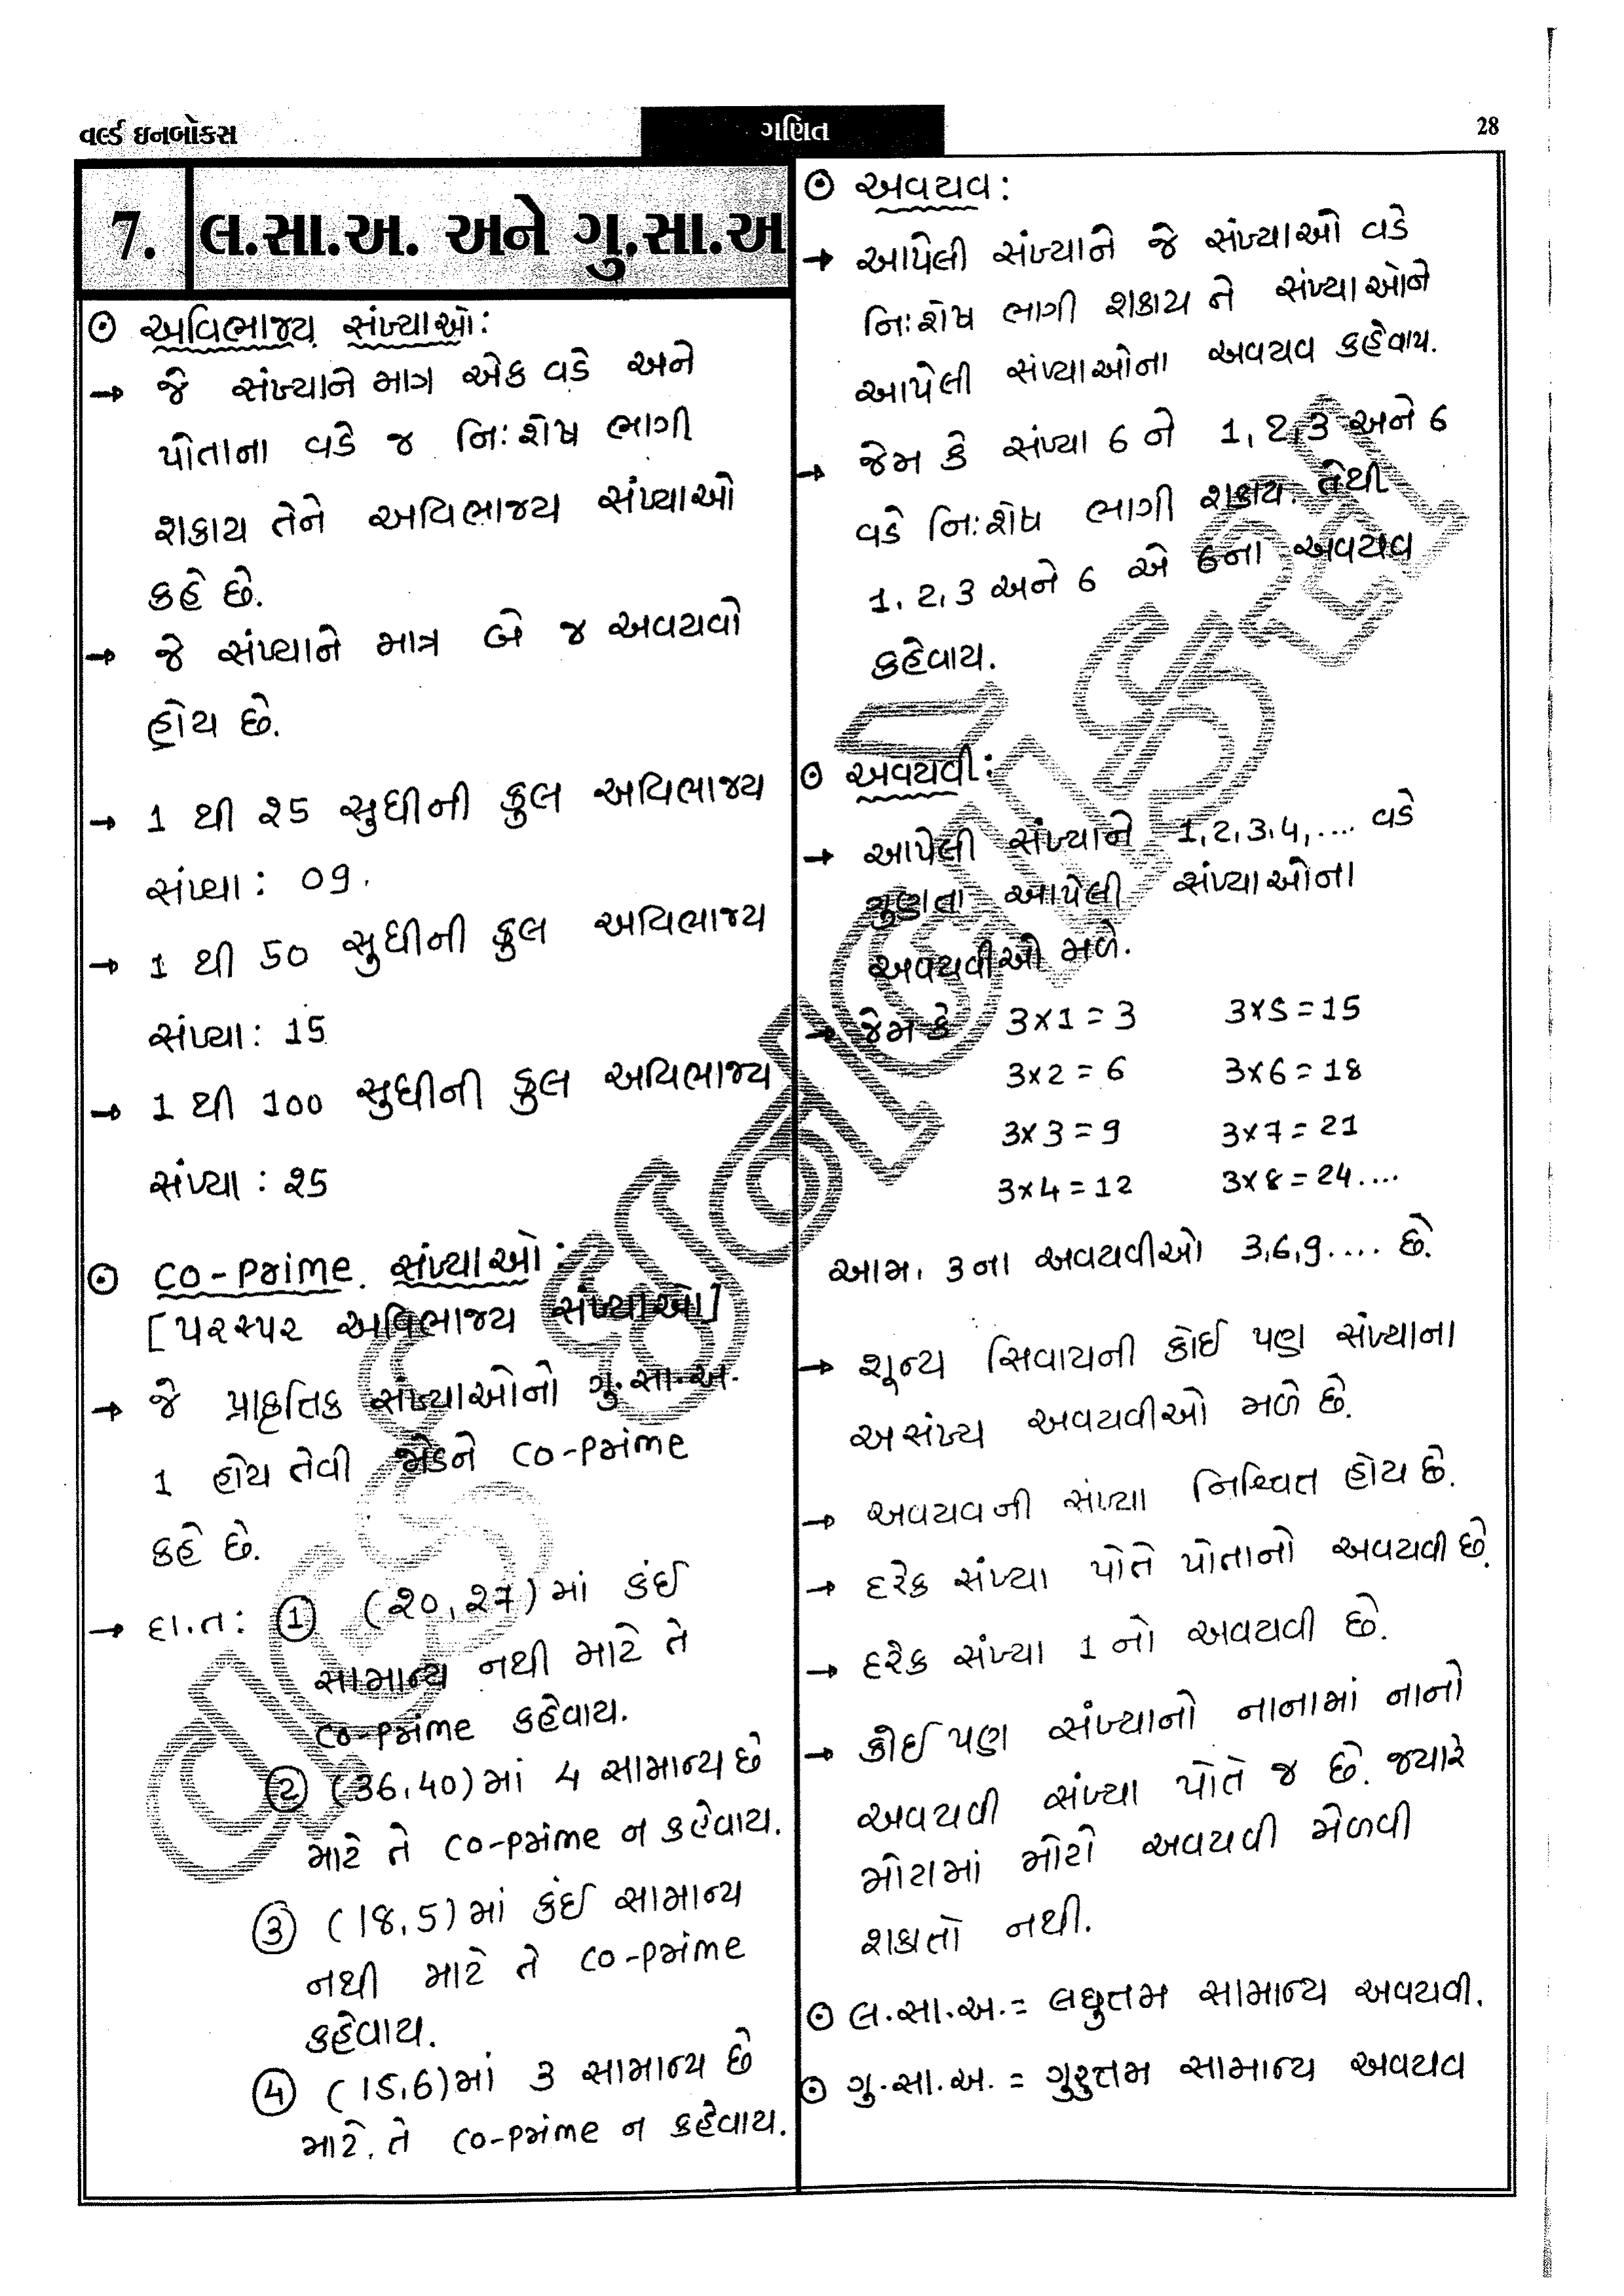 વર્લ્ડ ઇનબોક્સ
ગણિત
28
7. લ.સા.અ. અને ગુ.સા.અ
અવિભાજ્ય સંખ્યાઓ:
→ જે સંખ્યાને માત્ર એક વડે અને
પોતાના વડે જ નિ:શેષ ભાગી
શકાય તેને અવિભાજ્ય સંખ્યાઓ
કહે છે.
→ જે સંખ્યાને માત્ર બે જ અવયવો
હોય છે.
→ 1 થી ૨5 સુધીની કુલ અવિભાજ્ય
સંખ્યા: 09.
→ 1 થી 50 સુધીની કુલ અવિભાજ્ય
સંખ્યા: 15
→ 1 થી 100 સુધીની કુલ અવિભાજ્ય
સંખ્યા: ૨5
CO-Prime સંખ્યાઓ:
[પરસ્પર અવિભાજ્ય સંખ્યાઓ]
→ જે પ્રાકૃતિક સંખ્યાઓનો ગુ.સા.અ.
1 હોય તેવી જોડને CO-Prime
કહે છે.
→ દા.ત: ① (૨0,૨7)માં કંઈ
સામાન્ય નથી માટે તે
CO-Prime કહેવાય.
② (36,40)માં 4 સામાન્ય છે
માટે તે CO-Prime ન કહેવાય.
③ (18,5)માં કંઈ સામાન્ય
નથી માટે તે CO-Prime
કહેવાય.
④ (15,6)માં 3 સામાન્ય છે
માટે. તે CO-Prime ન કહેવાય.
અવયવ:
→ આપેલી સંખ્યાને જે સંખ્યાઓ વડે
નિ:શેષ ભાગી શકાય ને સંખ્યાઓને
આપેલી સંખ્યાઓના અવયવ કહેવાય.
→ જેમ કે સંખ્યા 6 ને 1,2,3 અને 6
વડે નિ:શેષ ભાગી શકાય. તેથી
1,2,3 અને 6 એ 6ના અવયવ
કહેવાય.
અવયવી:
→ આપેલી સંખ્યાને 1,2,3,4,.... વડે
ગુણતા આપેલી સંખ્યાઓના
અવયવીઓ મળે.
→ જેમ કે 3×1=3 3×5=15
3×2=6 3×6=18
3×3=9 3×7=21
3×4=12 3×8=24....
આમ, 3ના અવયવીઓ 3,6,9.... છે.
→ શૂન્ય સિવાયની કોઈ પણ સંખ્યાના
અસંખ્ય અવયવીઓ મળે છે.
→ અવયવની સંખ્યા નિશ્ચિત હોય છે.
→ દરેક સંખ્યા પોતે પોતાનો અવયવી છે.
→ દરેક સંખ્યા 1નો અવયવી છે.
→ કોઈ પણ સંખ્યાનો નાનામાં નાનો
અવયવી સંખ્યા પોતે જ છે. જ્યારે
મોટામાં મોટો અવયવી મેળવી
શકાતો નથી.
લ.સા.અ.= લઘુતમ સામાન્ય અવયવી.
ગુ.સા.અ.= ગુરુત્તમ સામાન્ય અવયવ